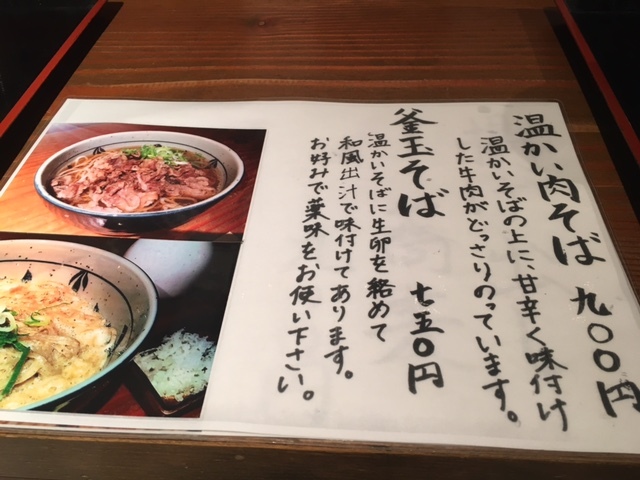 温かい肉そば 九〇〇円
温かいそばの上に、甘辛く味付け
した牛肉がどっさりのっています。
釜玉そば 七五〇円
温かいそばに生卵を絡めて
和風出汁で味付けてあります。
お好みで薬味をお使い下さい。